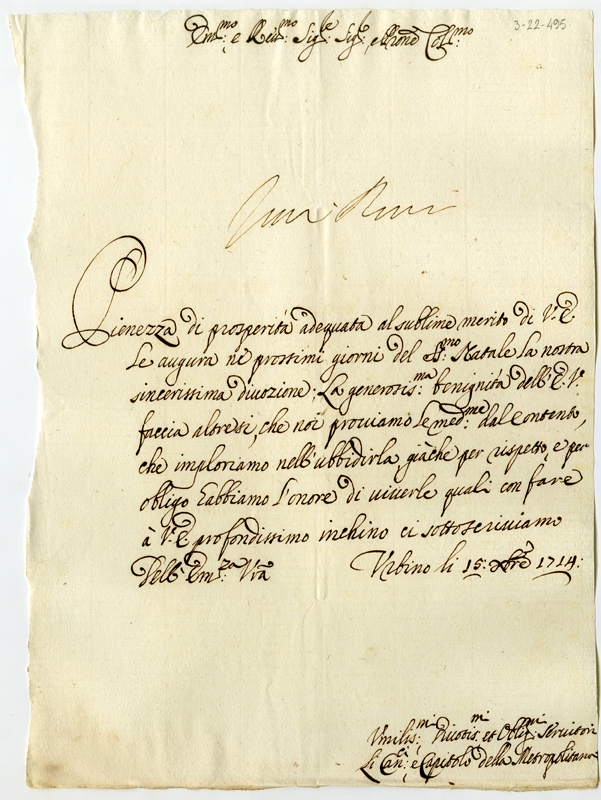 3-22-495
Em:mo e Rev:mo Sig:re Sig:re e Pron Col:mo
Pienezza di prosperità adequata al sublime merito di V.E.
Le augura nè prossimi giorni del S:mo Natale la nostra
sincerissima divozione; La generosis:ma benignità dell'E.V.
faccia altresi, che noi proviamo le med:me dal contento,
che imploriamo nell'ubbidirla, giàche per rispetto, e per
obligo habbiamo l'onore di viverle quali con fare
à V.E. profondissimo inchino ci sottoscriviamo
Dell'Em:za Vra Urbino li 15: Xbre 1714:
Umilis:mi Divotis:mi et Oblig:mi Servitori
Li Can:ci, e Capitolo della Metropolitana